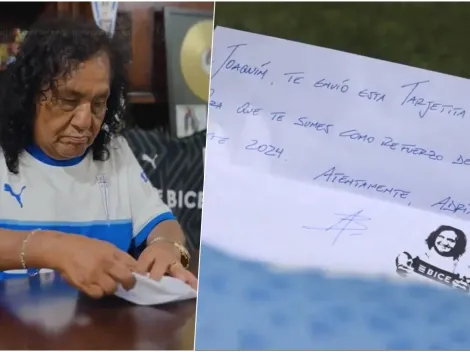 Joaquín, te envío esta tarjetita
que te sumes como refuerzo de
2024.
Atentamente,
BICE
BICE